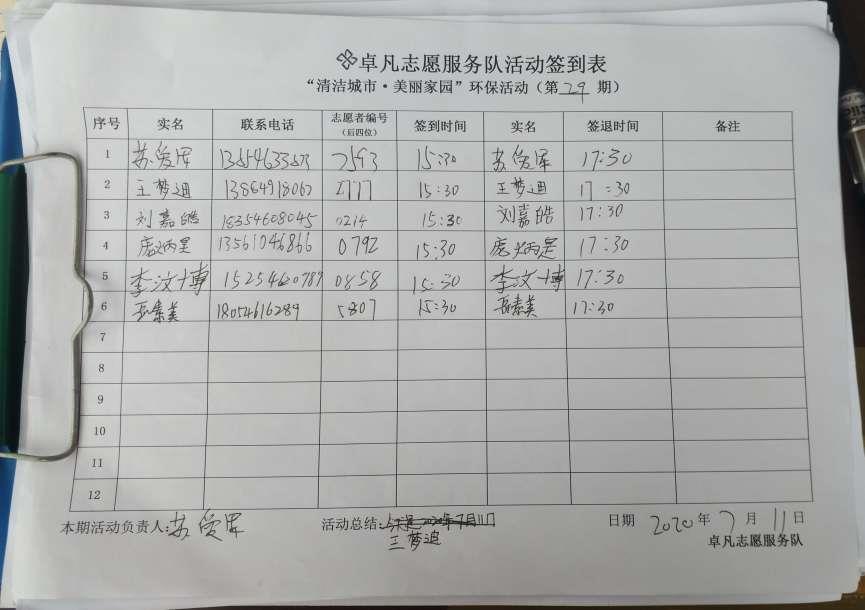 卓凡志愿服务队活动签到表
“清洁城市·美丽家园”环保活动（第 29 期）
序号 实名 联系电话 志愿者编号（后四位） 签到时间 实名 签退时间 备注
1 苏爱军 2593 15:30 苏爱军 17:30
2 王梦迪 13864918067 1777 15:30 王梦迪 17:30
3 刘嘉皓 18354608045 0214 15:30 刘嘉皓 17:30
4 13561046866 0792 15:30 17:30
5 李汶博 15254620789 0858 15:30 李汶博 17:30
6 岳素美 18054616289 5807 15:30 岳素美 17:30
7
8
9
10
11
12
本期活动负责人:苏爱军 活动总结: 日期 2020年7月11日
王梦迪
卓凡志愿服务队